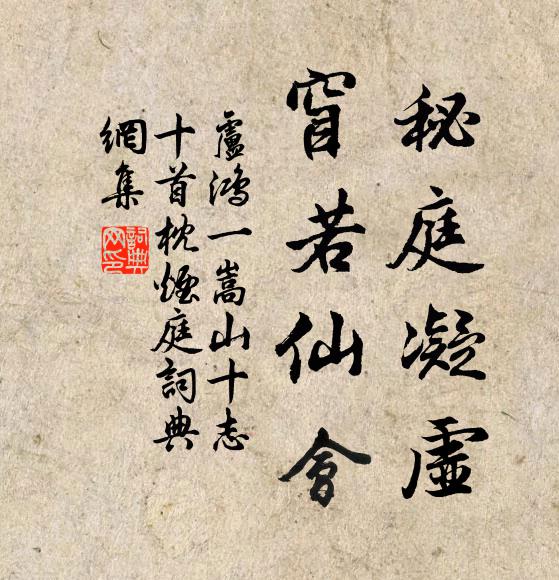 秘庭凝虛
窅若仙會
盧鴻一嵩山十志
十首枕煙庭詞典
網集
詞典
網印